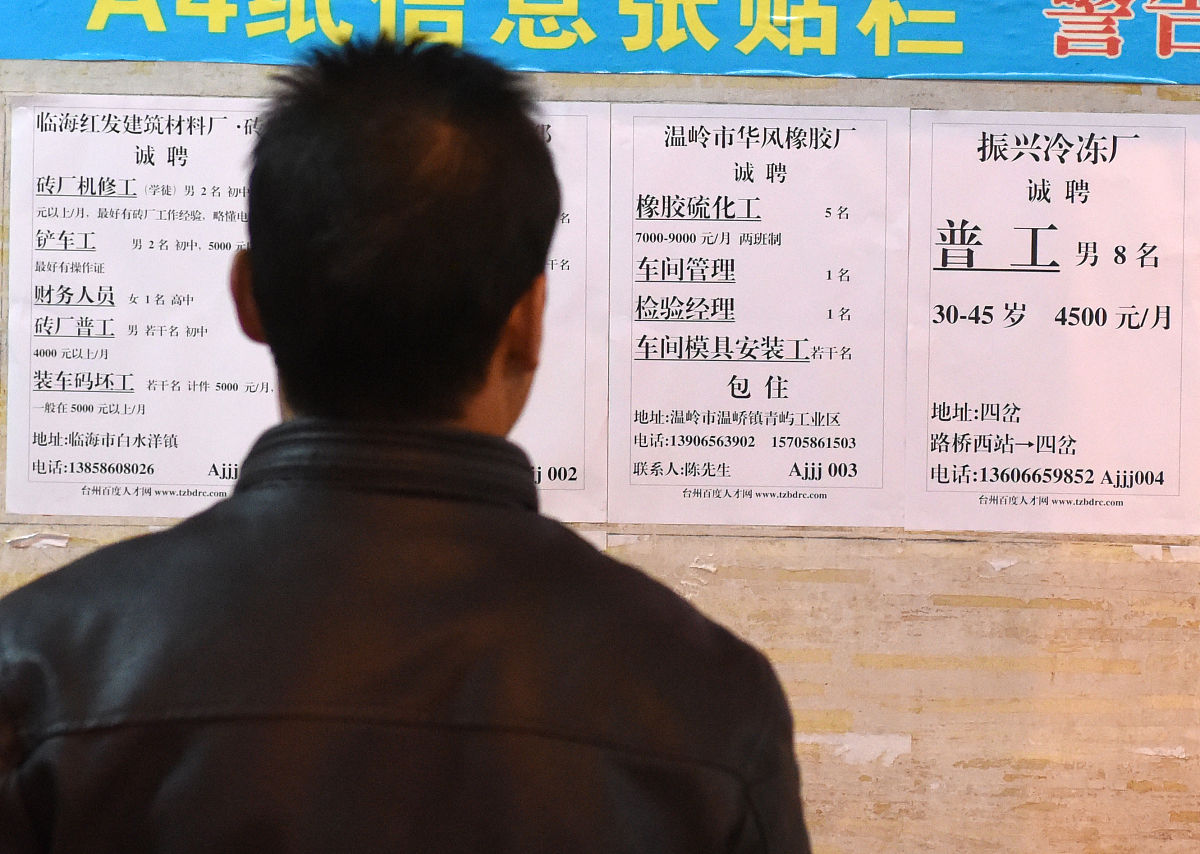 A4纸信息张贴栏
警告
临海红发建筑材料厂·砖
诚 聘
砖厂机修工（学徒）男 2 名 初中
元以上/月，最好有砖厂工作经验，略懂电
铲车工 男 2 名 初中，5000 元以
最好有操作证
财务人员 女 1 名 高中
砖厂普工 男 若干名 初中
4000 元以上/月
装车码坯工 若干名 计件 5000 元/月，
一般在 5000 元以上/月
地址:临海市白水洋镇
电话:13858608026 Ajjj
台州百度人才网 www.tzbdrc.com
名
干名
jj 002
温岭市华风橡胶厂
诚 聘
橡胶硫化工 5 名
7000-9000 元/月 两班制
车间管理 1 名
检验经理 1 名
车间模具安装工若干名
包 住
地址:温岭市温峤镇青屿工业区
电话:13906563902 15705861503
联系人:陈先生 Ajjj 003
台州百度人才网 www.tzbdrc.com
振兴冷冻厂
诚 聘
普 工 男 8 名
30-45 岁 4500 元/月
地址:四岔
路桥西站→四岔
电话:13606659852 Ajjj004
台州百度人才网 www.tzbdrc.com